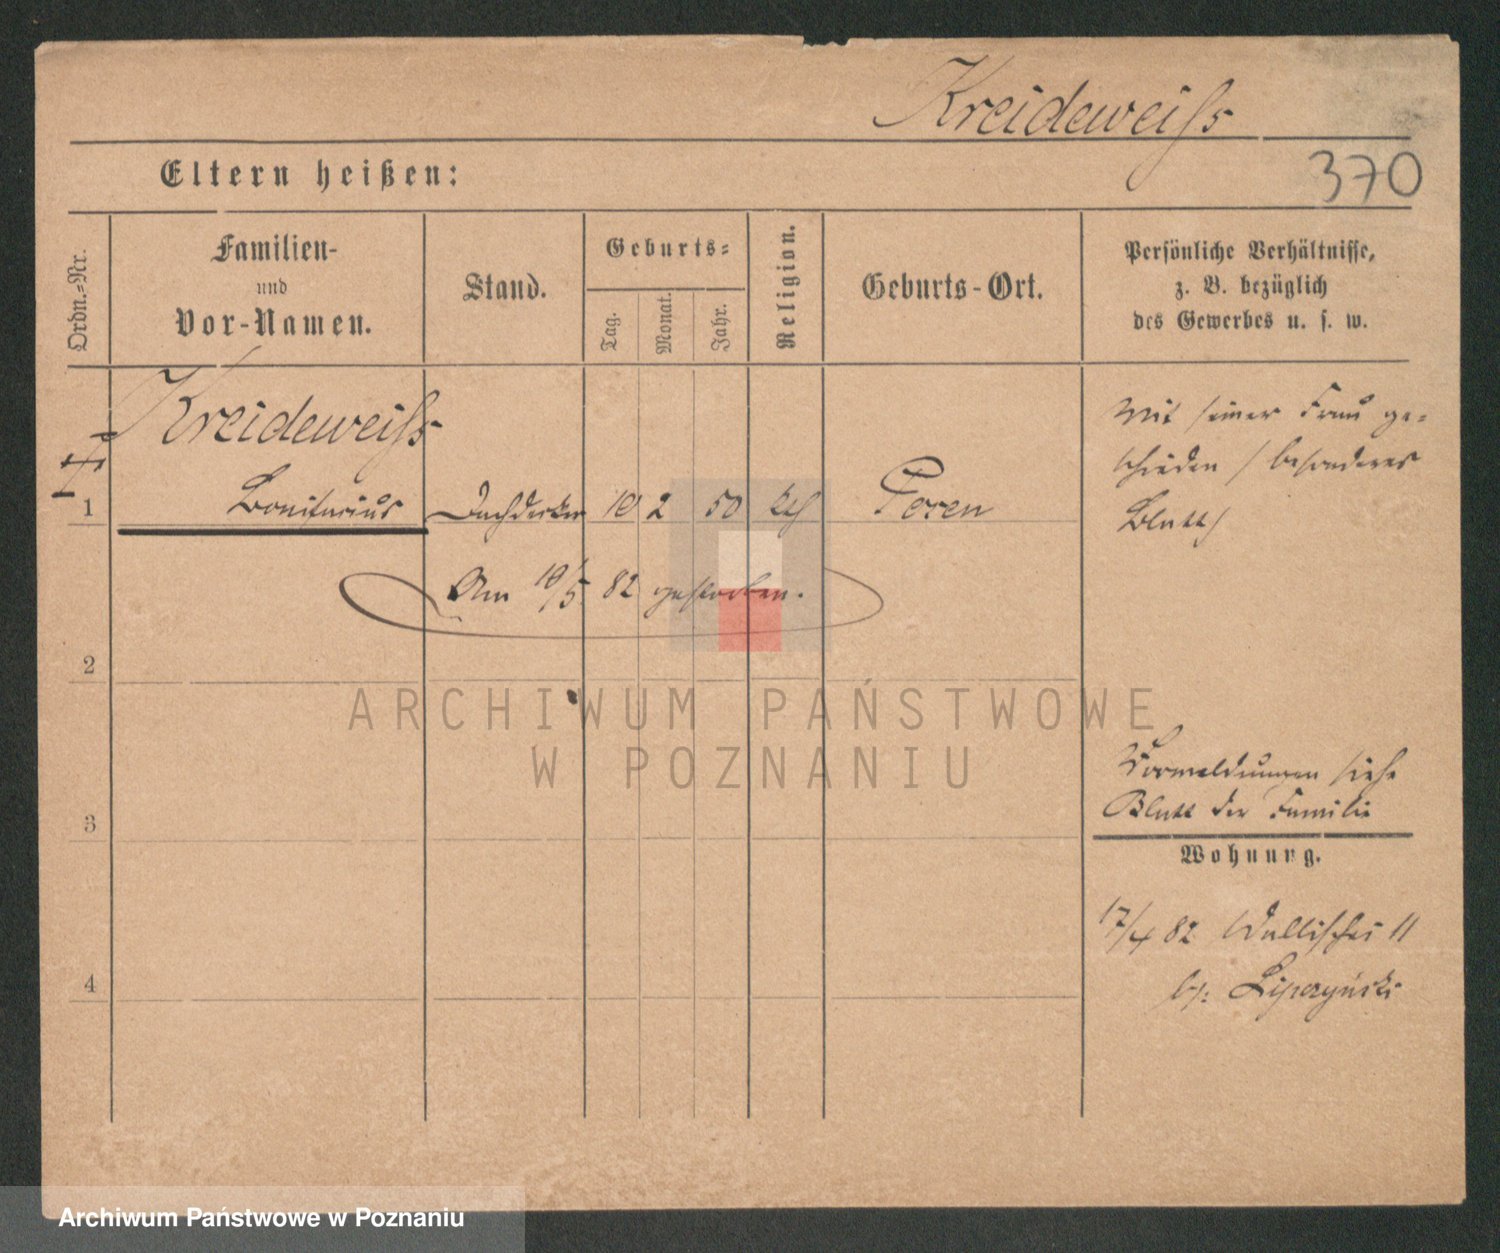 Kreideweiſs
370
Eltern heißen:
Ordn.=Nr.
Familien-
und
Vor-Namen.
Stand.
Geburts=
Tag.
Monat.
Jahr.
Religion.
Geburts-Ort.
Persönliche Verhältnisse,
z. B. bezüglich
des Gewerbes u. s. w.
Kreideweiſs
1 Bonifacius Dachdecker 10 2 50 kth Posen
Mit seiner Frau ge=
schieden / besonderes
Blatt /
Am 19/5 82 gestorben.
2
ARCHIWUM PAŃSTWOWE
W POZNANIU
Vormeldungen siehe
Blatt der Familie
3
Wohnung.
17/4 82 Wallischei 11
4
Archiwum Państwowe w Poznaniu